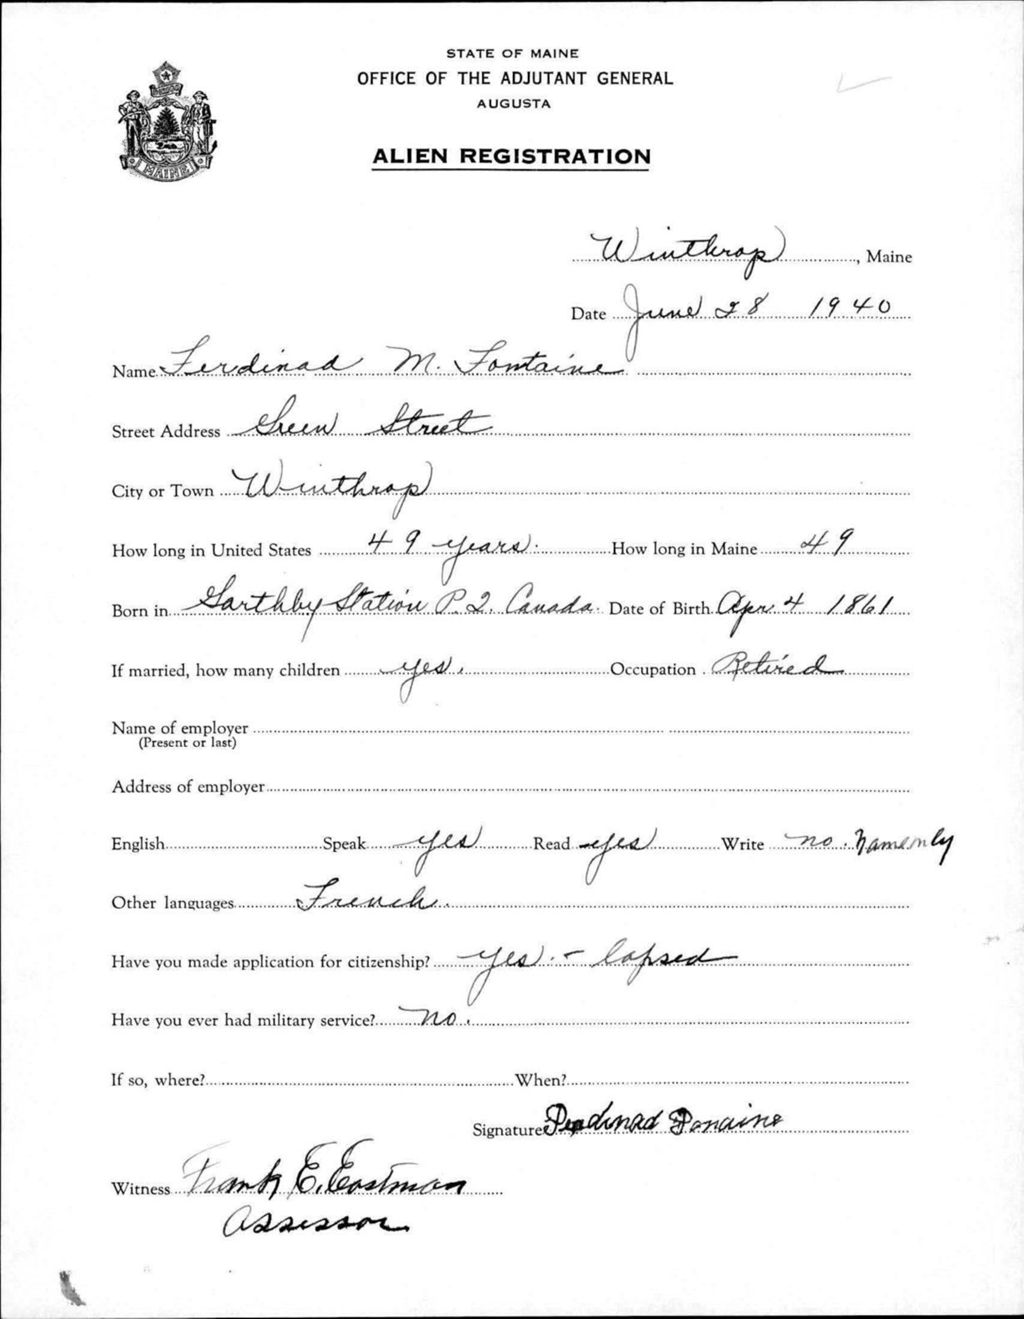 STATE OF MAINE
OFFICE OF THE ADJUTANT GENERAL
AUGUSTA
ALIEN REGISTRATION
MAINE
Winthrop, Maine
Date June 28 1940
Name Ferdinad M. Fontaine
Street Address Green Street
City or Town Winthrop
How long in United States 49 years. How long in Maine 49
Born in Garthby Station P.Q. Canada. Date of Birth Apr. 4 1861
If married, how many children yes. Occupation Retired
Name of employer
(Present or last)
Address of employer
English Speak yes Read yes Write no. name only
Other languages French.
Have you made application for citizenship? yes. - lapsed
Have you ever had military service? no.
If so, where? When?
Signature Ferdinad Fonaine
Witness Frank E. Eastman
Assessor